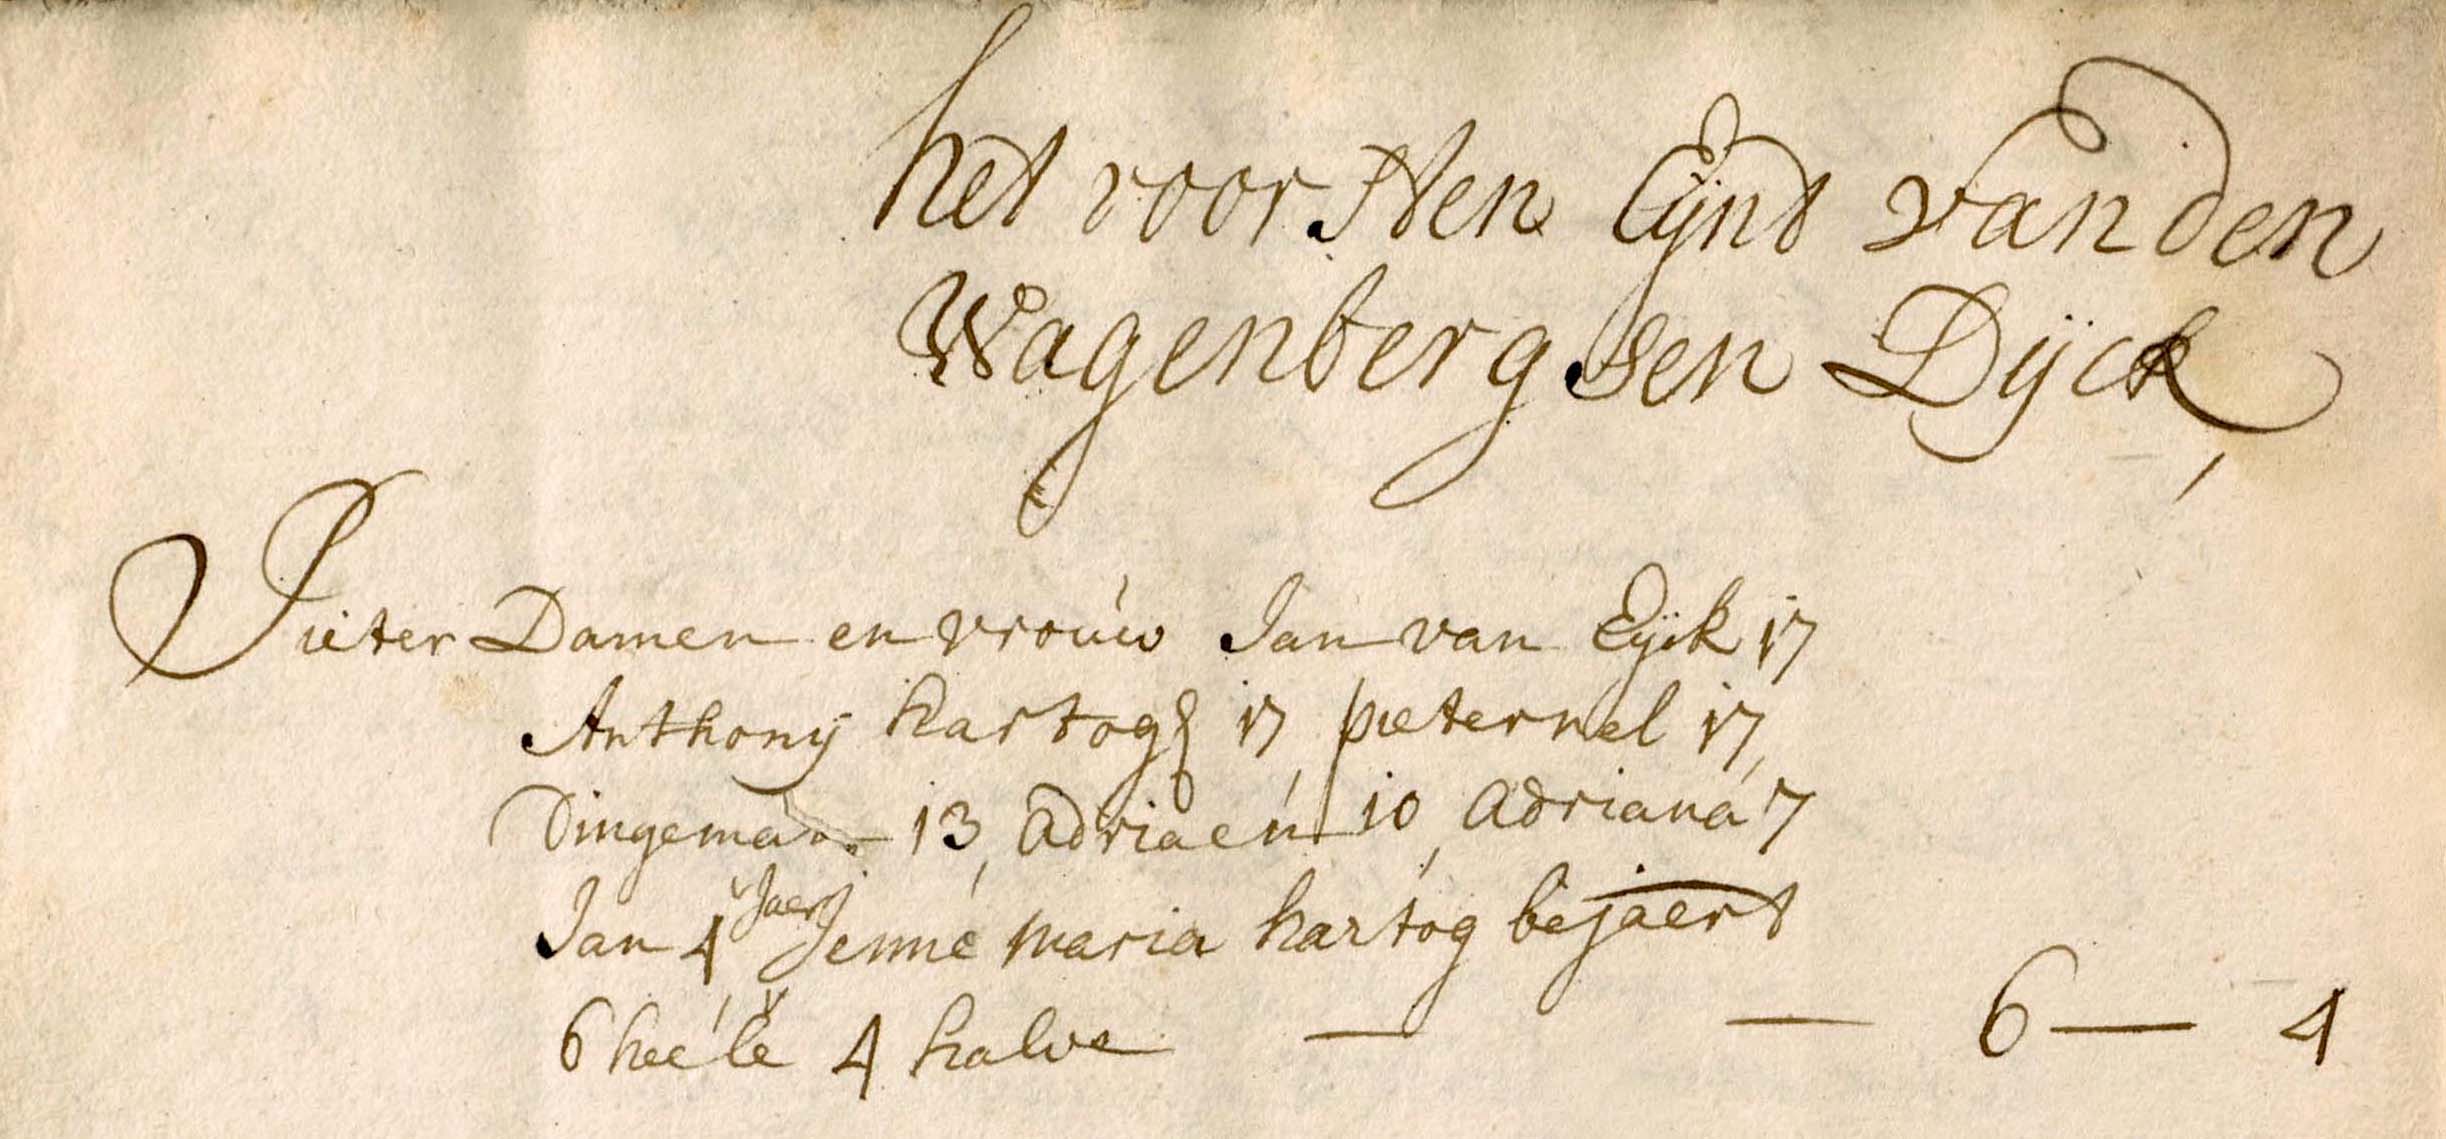 het voorsten Eynd van den
Wagenbergsen Dijck,
Pieter Damen en vrouw Jan van Eijck 17
Anthonij hartogs 17, pieternel 17,
Dingeman 13, Adriaen 10, Adriana 7
Jan 4 Jaer, Jenne maria hartog bejaert
6 heele 4 halve — — 6 — 4